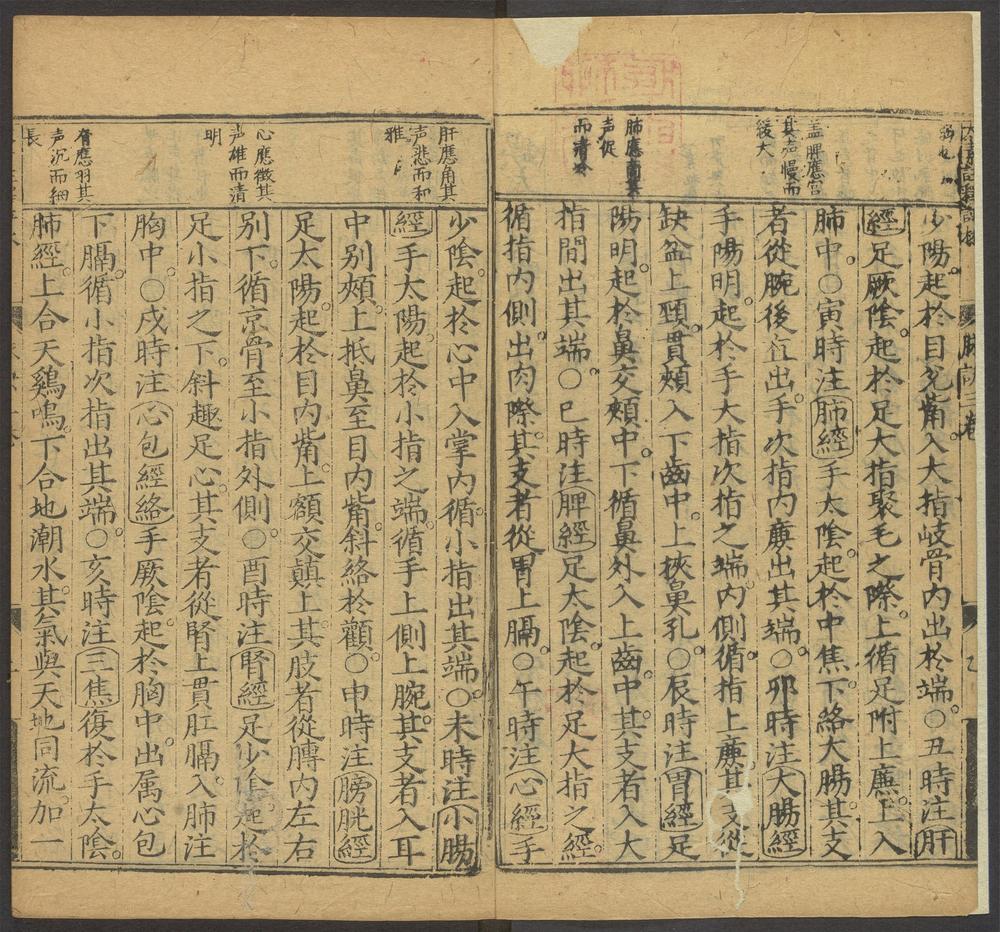 蓋脾應宮
其声慢而
緩大
肺應商其
声促
而清冷
少陽起於目兊觜入大指岐骨內出於端○丑時注肝
經足厥陰起於足大指聚毛之際上循足附上廉上入
肺中○寅時注肺經手太陰起於中焦下絡大腸其支
者從腕後直出手次指內廉出其端○卯時注大腸經
手陽明起於手大指次指之端內側循指上廉其支從
缺盆上頸貫頰入下齒中上挾鼻孔○辰時注胃經足
陽明起於鼻交頰中下循鼻外入上齒中其支者入大
指間出其端○巳時注脾經足太陰起於足大指之經
循指內側出肉際其支者從胃上膈○午時注心經手
肝應角其
声悲而和
雅
心應徵其
声雄而清
明
腎應羽其
声沉而細
長
少陰起於心中入掌內循小指出其端○未時注小腸
經手太陽起於小指之端循手上側上腕其支者入耳
中別頰上抵鼻至目內觜斜絡於顴○申時注膀胱經
足太陽起於目內觜上額交顛上其肢者從膊內左右
別下循京骨至小指外側○酉時注腎經足少陰起於
足小指之下斜趣足心其支者從腎上貫肛膈入肺注
胸中○戌時注心包經絡手厥陰起於胸中出属心包
下膈循小指次指出其端○亥時注三焦復於手太陰
肺經上合天鷄鳴下合地潮水其氣與天地同流加一